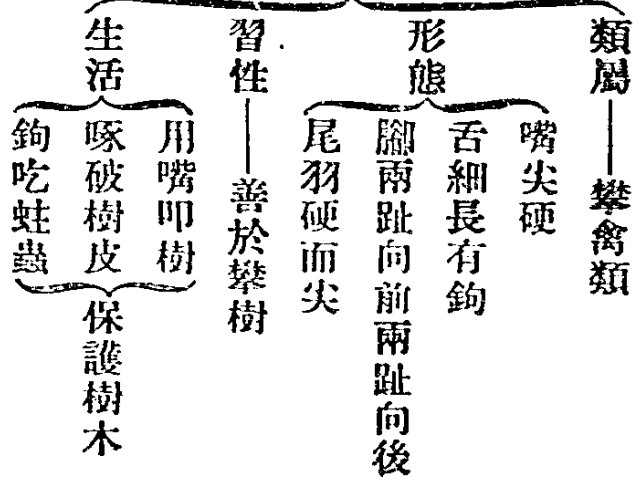 類屬
攀禽類
形態
嘴尖硬
舌細長有鉤
腳兩趾向前兩趾向後
尾羽硬而尖
習性
善於攀樹
生活
用嘴叩樹
啄破樹皮
鉤吃蛀蟲
保護樹木